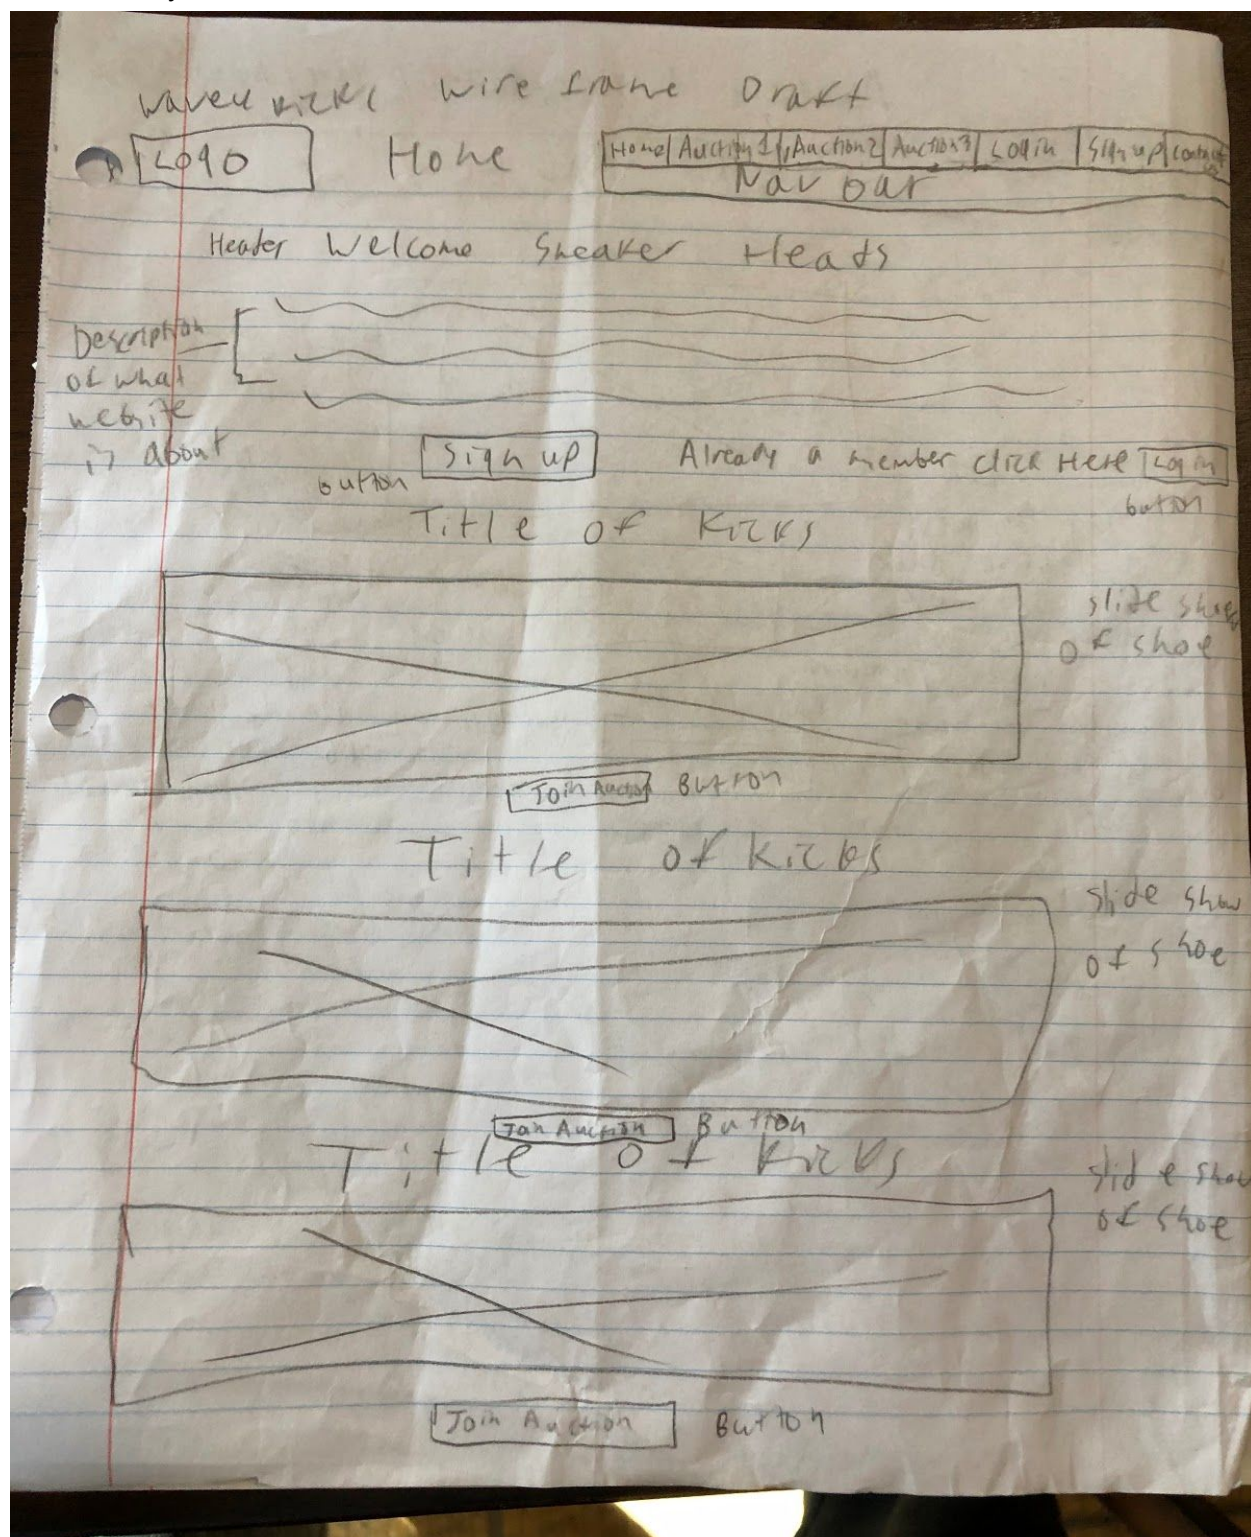 Wire frame Draft
LOGO Home Home Auction 1 Auction 2 Auction 3 Login Sign up Contact us
Nav bar
Header Welcome Sneaker Heads
Description
of what
website
is about
Sign up Already a member click Here Log in
button button
Title of Kicks
slide show
of shoe
Join Auction Button
Title of Kicks
slide show
of shoe
Join Auction Button
Title of Kicks
slide show
of shoe
Join Auction Button